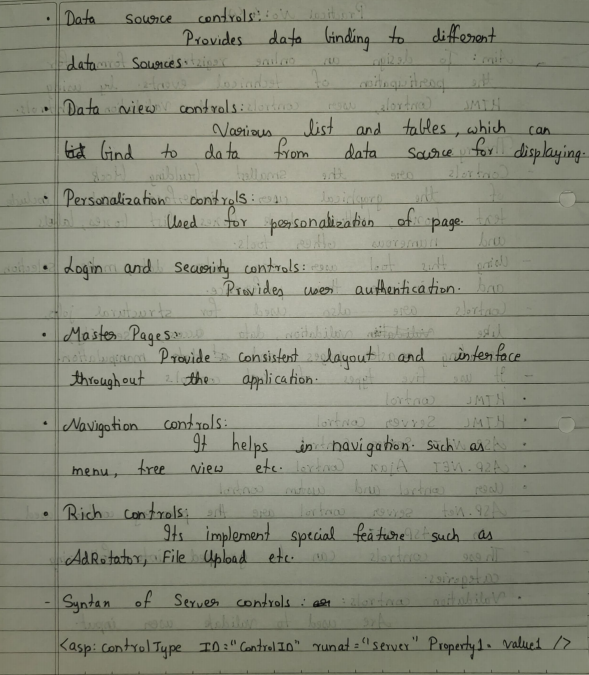 • Data source controls:
Provides data binding to different
data sources.
• Data view controls:
Various list and tables, which can
bind to data from data source for displaying.
• Personalization controls:
Used for personalization of page.
• Login and security controls:
Provides user authentication.
• Master Pages:
Provide consistent layout and interface
throughout the application.
• Navigation controls:
It helps in navigation. such as
menu, tree view etc.
• Rich controls:
Its implement special feature such as
AdRotator, File Upload etc.
- Syntan of Server controls :
<asp: control Type ID="Control ID" runat="server" Property1. value1 />